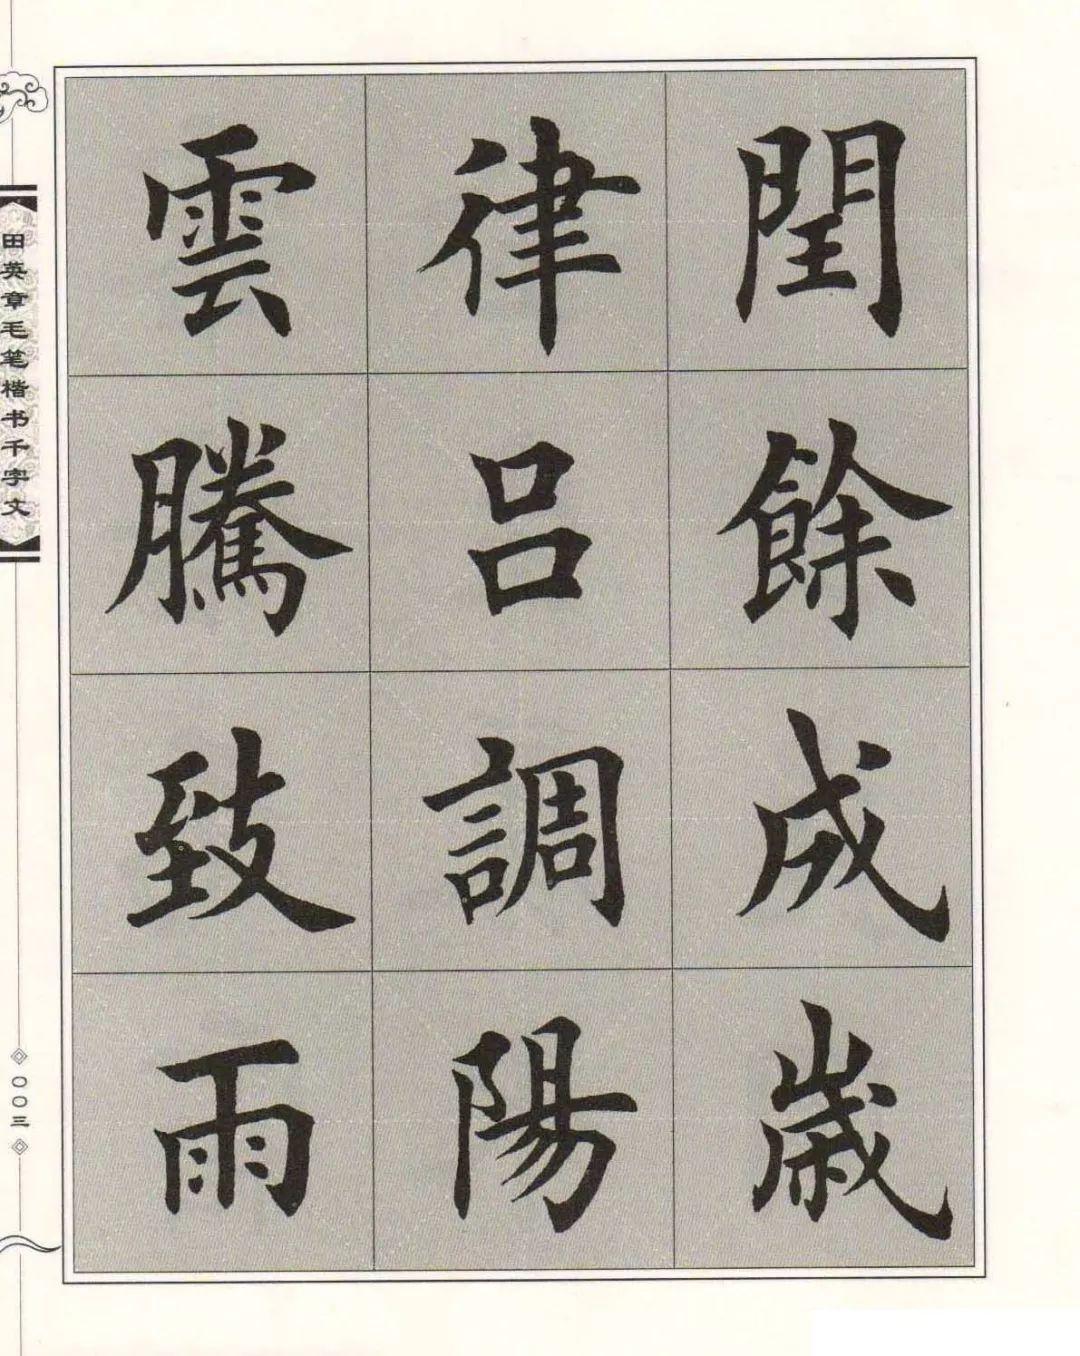 閏餘成歲
律吕調陽
雲騰致雨
田英章毛笔楷书千字文
〇〇三